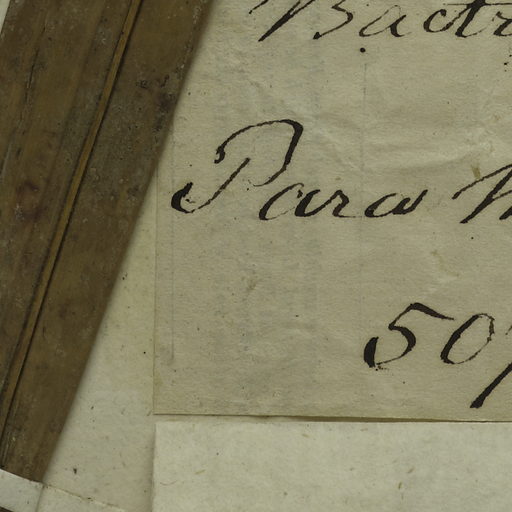 Bactr
Para
50